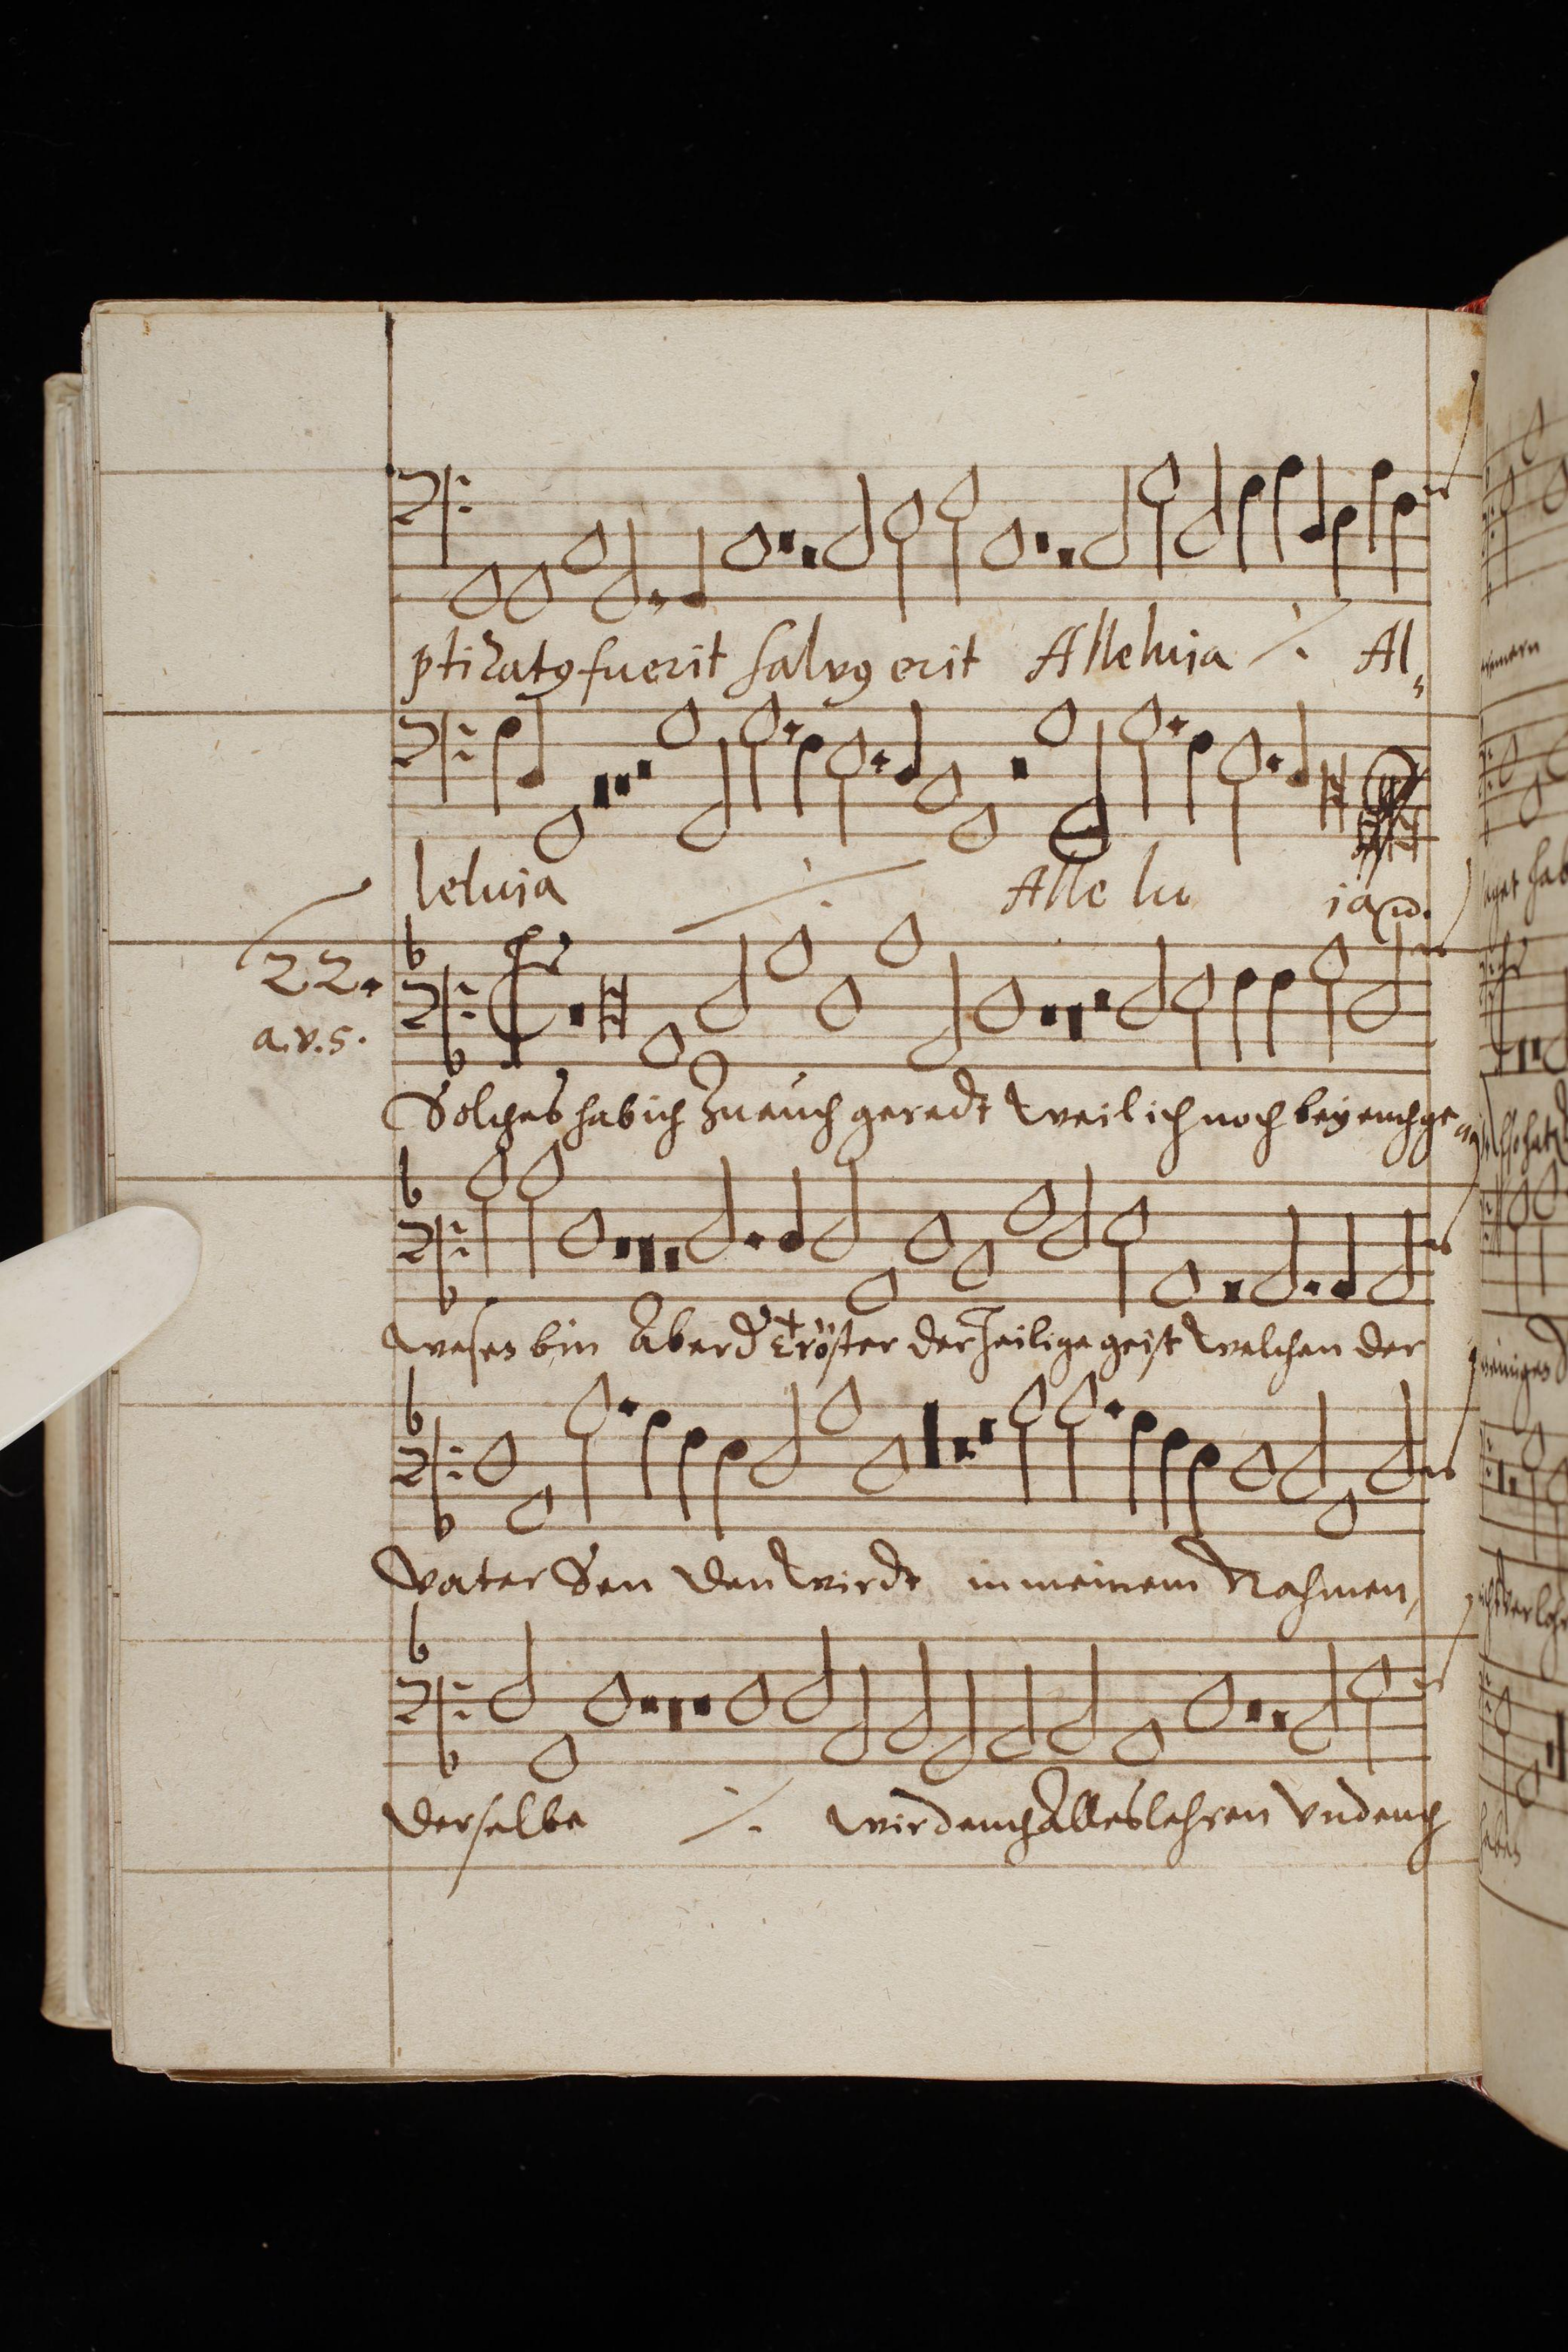 ptizatꝰ fuerit salvꝰ erit Alleluia ./. Al,
leluia ./. Alle lu ia
22.
a.v.5.
Solches hab ich zu euch geredt weil ich noch bey euch ge
wesen bin Aber d Tröster der heilige geist welchen der
vater Sen den wirdt in meinem Nahmen,
derselbe ./. wird euch Alles lehren vnd euch